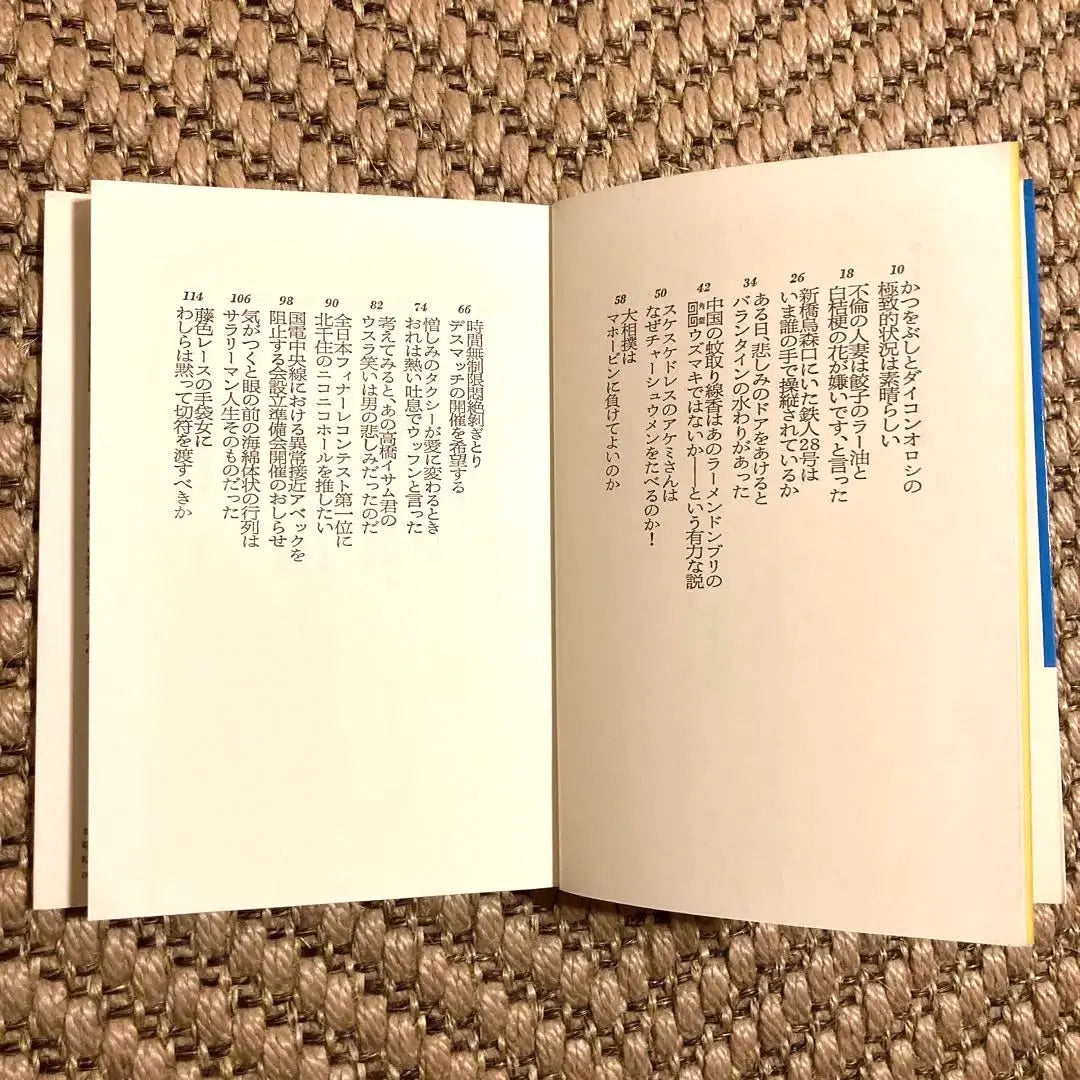 10
かつをぶしとダイコンオロシの
極致的状況は素晴らしい
18
不倫の人妻は餃子のラー油と
白桔梗の花が嫌いです、と言った
26
新橋烏森口にいた鉄人28号は
いま誰の手で操縦されているか
34
ある日、悲しみのドアをあけると
バランタインの水わりがあった
42
中国の蚊取り線香はあのラーメンドンブリの
回回ウズマキではないか――という有力な説
50
スケスケドレスのアケミさんは
なぜチャーシュウメンをたべるのか!
58
大相撲は
マホービンに負けてよいのか
66
時間無制限悶絶剝ぎとり
デスマッチの開催を希望する
74
憎しみのタクシーが愛に変わるとき
おれは熱い吐息でウッフンと言った
82
考えてみると、あの高橋イサム君の
ウスラ笑いは男の悲しみだったのだ
90
全日本フィナーレコンテスト第一位に
北千住のニコニコホールを推したい
98
国電中央線における異常接近アベックを
阻止する会設立準備会開催のおしらせ
106
気がつくと眼の前の海綿体状の行列は
サラリーマン人生そのものだった
114
藤色レースの手袋女に
わしらは黙って切符を渡すべきか